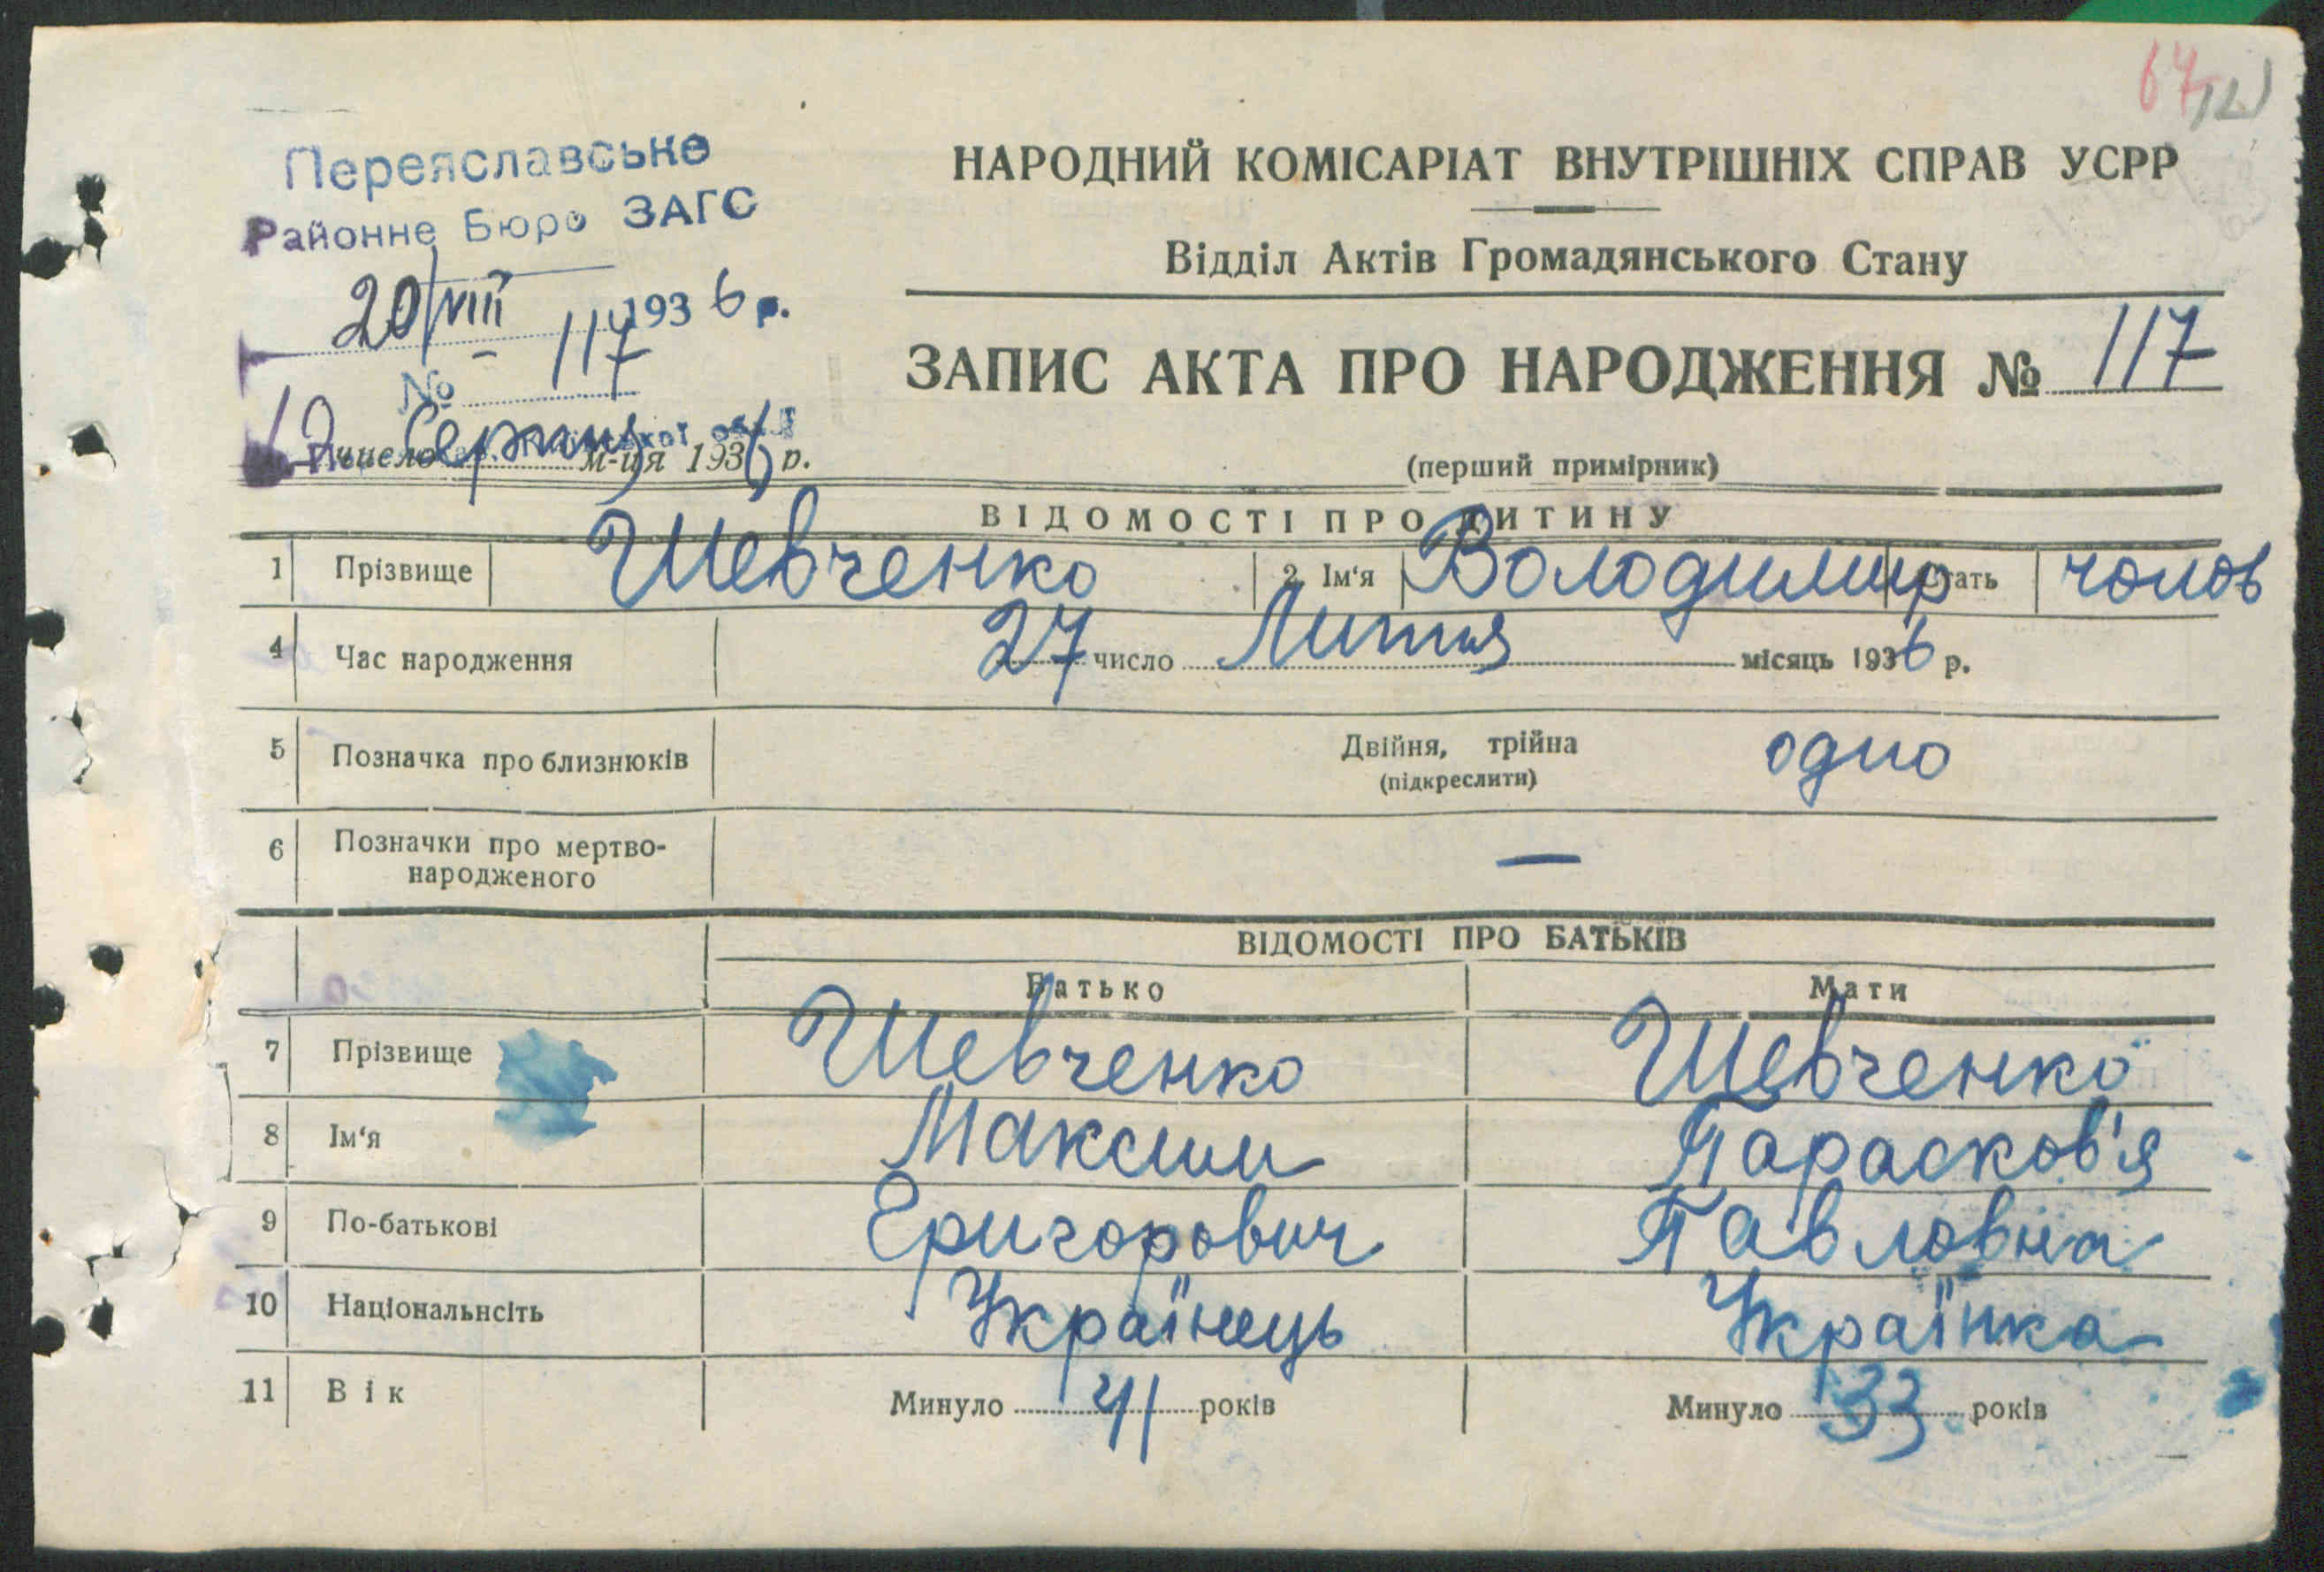 Переяславське
Районне Бюро ЗАГС
20/VIII 1936 р.
№ 117
число Серпня м-ця 1936 р.
НАРОДНИЙ КОМІСАРІАТ ВНУТРІШНІХ СПРАВ УСРР
Відділ Актів Громадянського Стану
ЗАПИС АКТА ПРО НАРОДЖЕННЯ № 117
(перший примірник)
ВІДОМОСТІ ПРО ДИТИНУ
1 Прізвище Шевченко 2 Ім'я Володимир Стать чолов
4 Час народження 27 число Липня місяць 1936 р.
5 Позначка про близнюків Двійня, трійна одно
(підкреслити)
6 Позначки про мертво-
народженого —
ВІДОМОСТІ ПРО БАТЬКІВ
Батько Мати
7 Прізвище Шевченко Шевченко
8 Ім'я Максим Парасков'я
9 По-батькові Григорович Павловна
10 Національнсіть Українець Українка
11 Вік Минуло 41 років Минуло 33 років